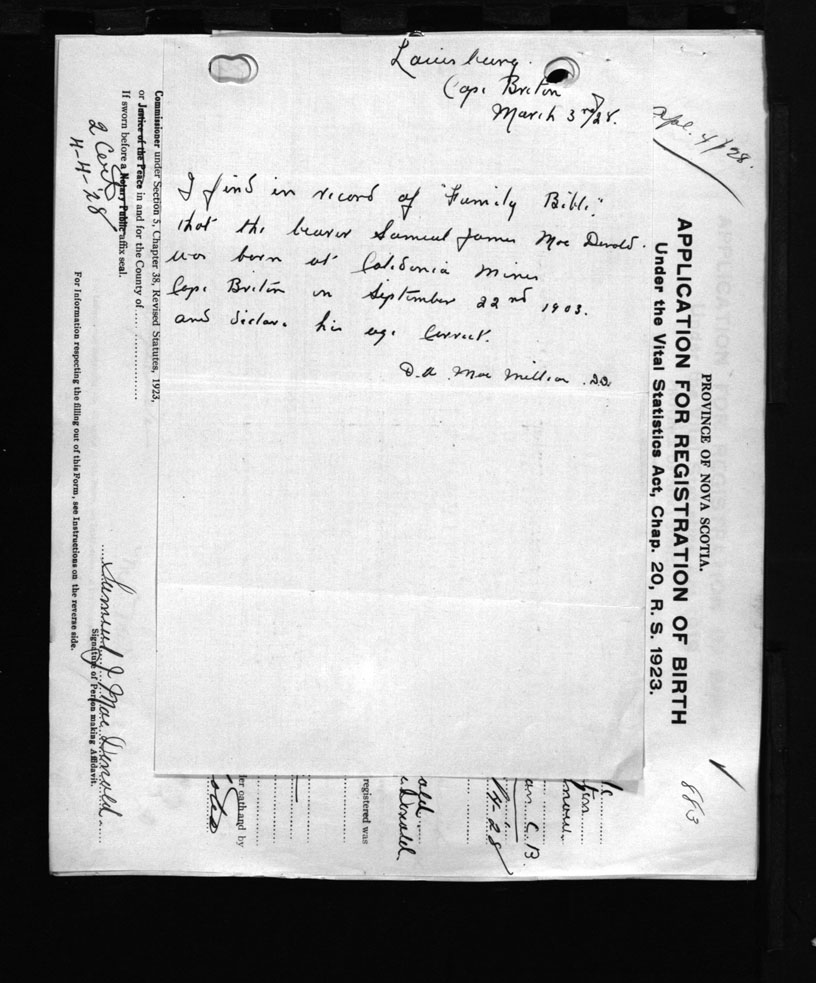 Louisburg.
Cape Breton
March 3rd/28.
I find in record of "Family Bible"
that the bearer Samuel James Mac Donald.
was born at Caledonia Mines
Cape Breton on September 22nd 1903.
and declare his age Correct.
D.A. Mac Millan
Apl. 4/28.
PROVINCE OF NOVA SCOTIA.
APPLICATION FOR REGISTRATION OF BIRTH
Under the Vital Statistics Act, Chap. 20, R. S. 1923.
883
C.B.
4-28
ald
Donald
registered was
oath and by
Samuel J Mac Donald
Signature of Person making Affidavit.
Commissioner under Section 5, Chapter 38, Revised Statutes, 1923,
or Justice of the Peace in and for the County of
If sworn before a Notary Public affix seal.
2 Certs
4-4-28
For Information respecting the filling out of this Form, see Instructions on the reverse side.